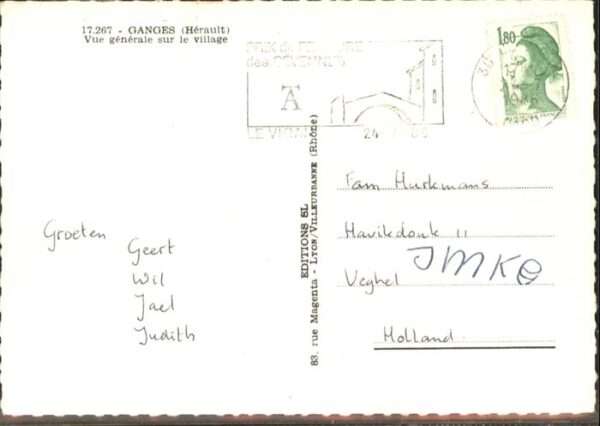 17.267 - GANGES (Hérault)
Vue générale sur le village
des CÉVENNES
LE VIGAN
1,80
EDITIONS SL
83, rue Magenta - LYON/VILLEURBANNE (Rhône)
Groeten
Geert
Wil
Jael
Judith
Fam Hurkmans
Havikdonk 11
Veghel
Holland.